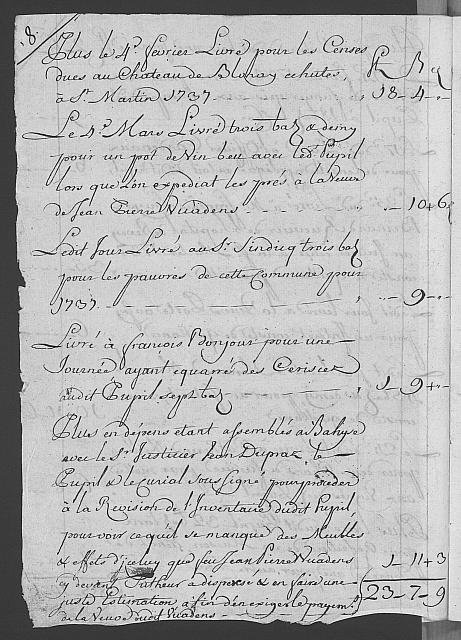 8.
Plus le 4e. fevrier Livré pour les Censes
dues au Chateau de Blonay echutes,
à St. Martin 1737. 18 - 4 -
Le 4e. Mars Livré trois batz & demy
pour un pot de Vin beu avec led. Pupil
lors que l'on expediat les prés à la Veuve
de Jean Pierre Vuadens - - - 10 + 6
Ledit Jour Livré au Sr. Sindiq trois batz
pour les pauvres de cette Commune pour
1737. - - - 9 -
Livré à francois Bonjour pour une
Journée ayant equarré des Cerisiez
audit Pupil sept batz - - 1 - 9 + -
Plus en depens etant assemblés à
avec le Sr. Justicier Jean Dupraz le
Pupil & le Curial soussigné pour proceder
à la Revision de l'Inventaire dudit Pupil,
pour voir ce qu'il se manque des Meubles
& effets d'iceluy que feu Jean Pierre Vuadens 1 - 11 + 3
cy devant Tutheur a disposé & en faire une
juste Estimation afin d'en exiger le payemt. 23 - 7 - 9
de la Veuve dudit Vuadens -